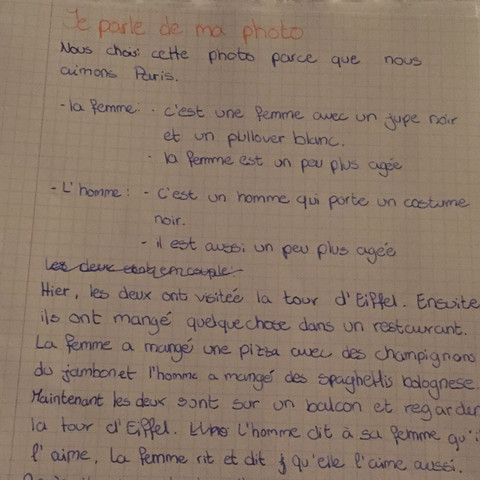 Je parle de ma photo
Nous choisi cette photo parce que nous
aimons Paris.
- la femme: · c'est une femme avec un jupe noir
et un pullover blanc.
· la femme est un peu plus agée
- L'homme: - c'est un homme qui porte un costume
noir.
- il est aussi un peu plus agée
Les deux sont en couple
Hier, les deux ont visiteé la tour d'Eiffel. Ensuite
ils ont mangé quelque chose dans un restaurant.
La femme a mangé une pizza avec des champignons
du jambon et l'homme a mangé des spaghettis bolognese.
Maintenant les deux sont sur un balcon et regarder
la tour d'Eiffel. L'homme dit à sa femme qu'i
l'aime, La femme rit et dit qu'elle l'aime aussi.